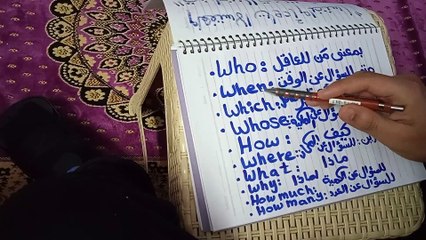 Who: بمعنى من للعاقل
When: للسؤال عن الوقت
Which:
Whose: للسؤال عن
How: كيف
Where: للسؤال عن
What: ماذا
Why: لماذا
How much: للسؤال عن الكمية
How many: للسؤال عن العدد